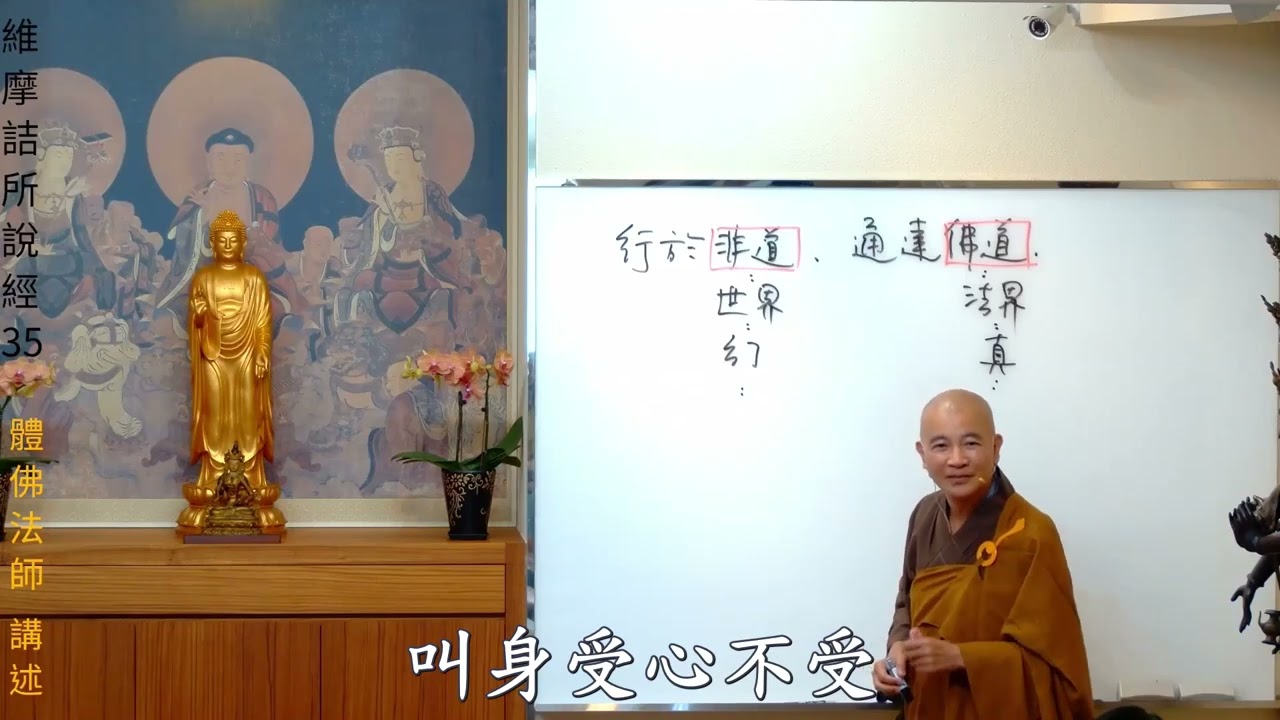 維摩詰所說經35
體佛法師 講述
行於非道、通達佛道.
世界 法界
幻 真
叫身受心不受